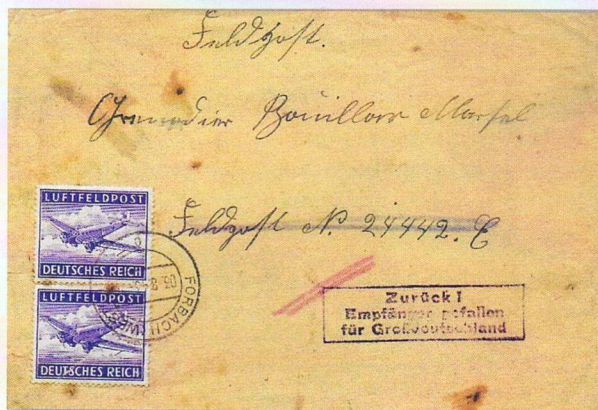 Feldpost.
Grenadier Bouillon Marsel
Feldpost N. 24442. E
LUFTFELDPOST
DEUTSCHES REICH
LUFTFELDPOST
DEUTSCHES REICH
FORBACH (WES
Zurück !
Empfänger gefallen
für Großdeutschland